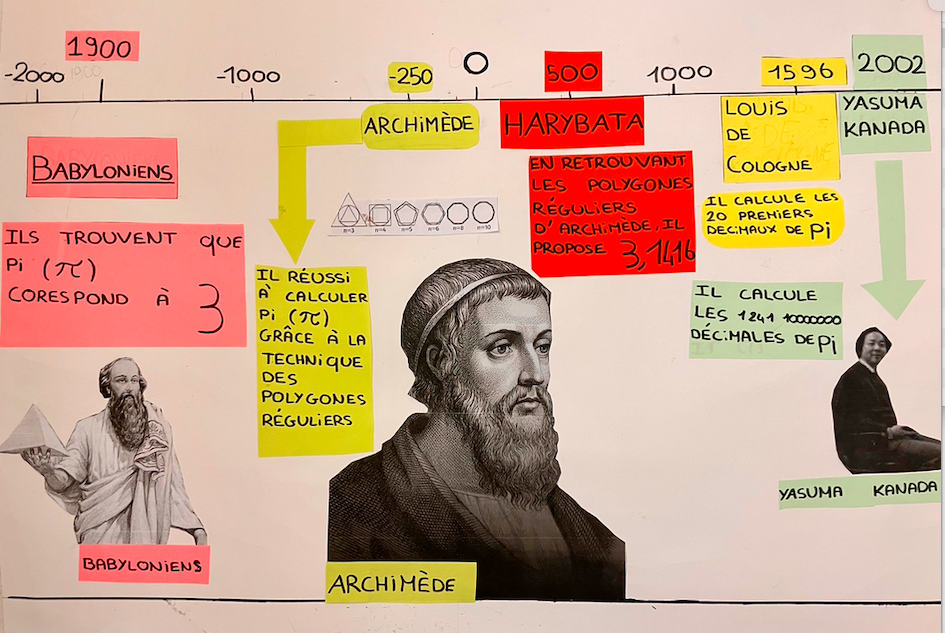 1900
-2000
-1000
-250
0
500
1000
1596
2002
BABYLONIENS
ILS TROUVENT QUE
Pi (π)
CORESPOND À 3
BABYLONIENS
ARCHIMÈDE
n=3 n=4 n=5 n=6 n=8 n=10
IL RÉUSSI
À CALCULER
Pi (π)
GRÂCE À LA
TECHNIQUE
DES
POLYGONES
RÉGULIERS
ARCHIMÈDE
HARYBATA
EN RETROUVANT
LES POLYGONES
RÉGULIERS
D'ARCHIMÈDE, IL
PROPOSE 3,1416
LOUIS
DE
COLOGNE
IL CALCULE LES
20 PREMIERS
DECIMAUX DE Pi
YASUMA
KANADA
IL CALCULE
LES 1241 10000000
DÉCIMALES DE Pi
YASUMA KANADA